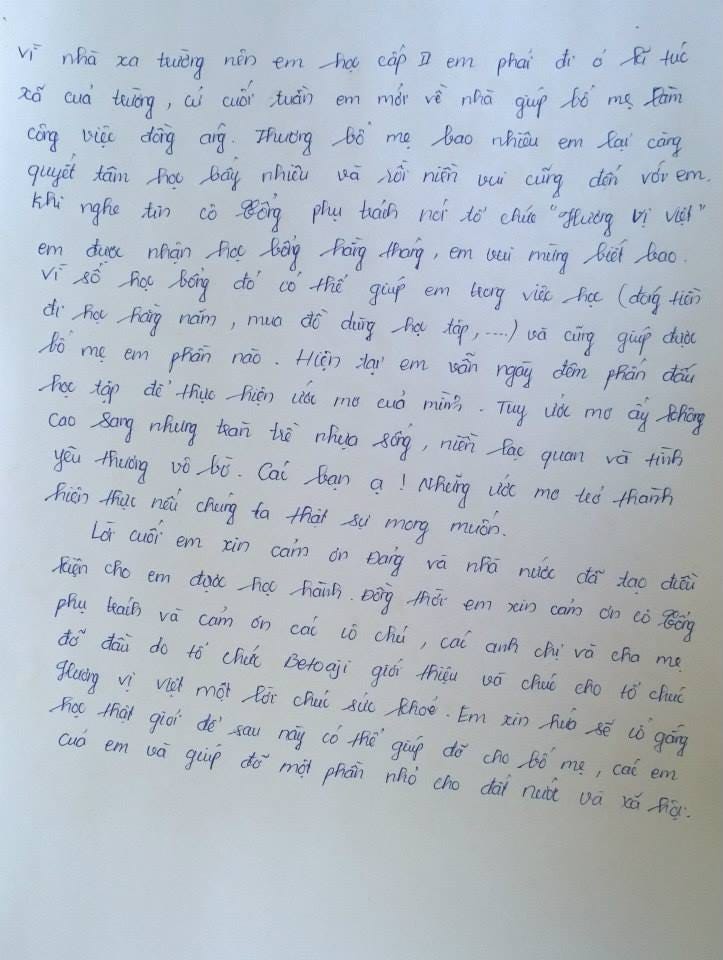 Vì nhà xa trường nên em học cấp II em phải đi ở kĩ túc
xá của trường, cứ cuối tuần em mới về nhà giúp bố mẹ làm
công việc đồng áng. Thương bố mẹ bao nhiêu em lại càng
quyết tâm học bấy nhiêu và rồi niền vui cũng đến với em.
Khi nghe tin cô Tổng phụ trách nói tổ chức "Hương vị việt"
em được nhận học bổng hàng tháng, em vui mừng biết bao.
Vì số học bổng đó có thể giúp em trong việc học (đóng tiền
đi học hàng năm, mua đồ dùng học tập, ....) và cũng giúp được
bố mẹ em phần nào. Hiện tại em vẫn ngày đêm phấn đấu
học tập để thực hiện ước mơ của mình. Tuy ước mơ ấy không
cao sang nhưng tràn trề nhựa sống, niền lạc quan và tình
yêu thương vô bờ. Các bạn ạ! Những ước mơ trở thành
hiện thực nếu chúng ta thật sự mong muốn.
Lời cuối em xin cảm ơn Đảng và nhà nước đã tạo điều
kiện cho em được học hành. Đồng thời em xin cảm ơn cô Tổng
phụ trách và cảm ơn các cô chú, các anh chị và cha mẹ
đỡ đầu do tổ chức Betoaji giới thiệu và chúc cho tổ chức
Hương vị việt một lời chúc sức khoẻ. Em xin hứa sẽ cố gắng
học thật giỏi để sau này có thể giúp đỡ cho bố mẹ, các em
của em và giúp đỡ một phần nhỏ cho đất nước và xã hội.